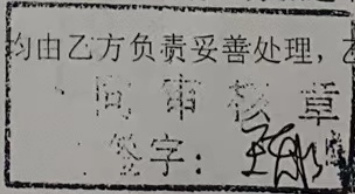 均由乙方负责妥善处理，乙
合同审核章
签字：